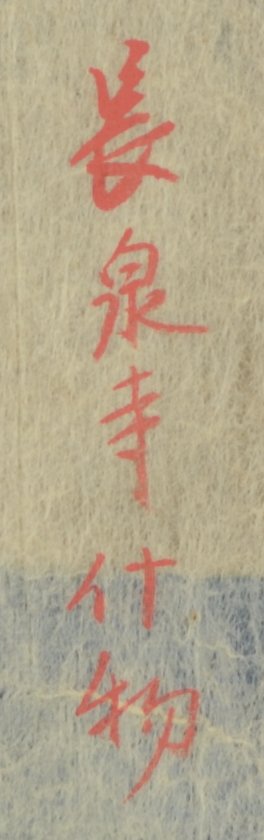 長泉寺什物